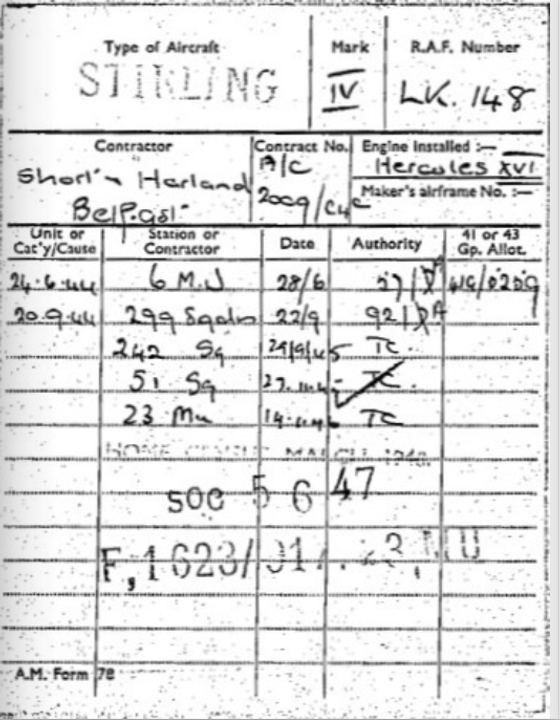 Type of Aircraft Mark R.A.F. Number
STIRLING IV LK. 148
Contractor Contract No. Engine Installed :—
Short & Harland A/C Hercules XVI
Belfast 2009/C4c Maker's airframe No. :—
Unit or Cat'y/Cause Station or Contractor Date Authority 41 or 43 Gp. Allot.
24.6.44 6 M.U 28/6 57/DA 41G/0259
20.9.44 299 Sqdn 22/9 92/DA
242 Sq 29/9/45 TC.
51 Sq 27. TC.
23 Mu TC
HOME CENSUS MARCH 1946.
soc 5 6 47
F,1623/ 23, MU
A.M. Form 78